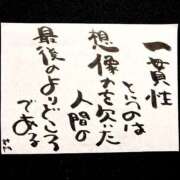 一貫性
というのは
想像力を欠いた
人間の
最後のよりどころ
である